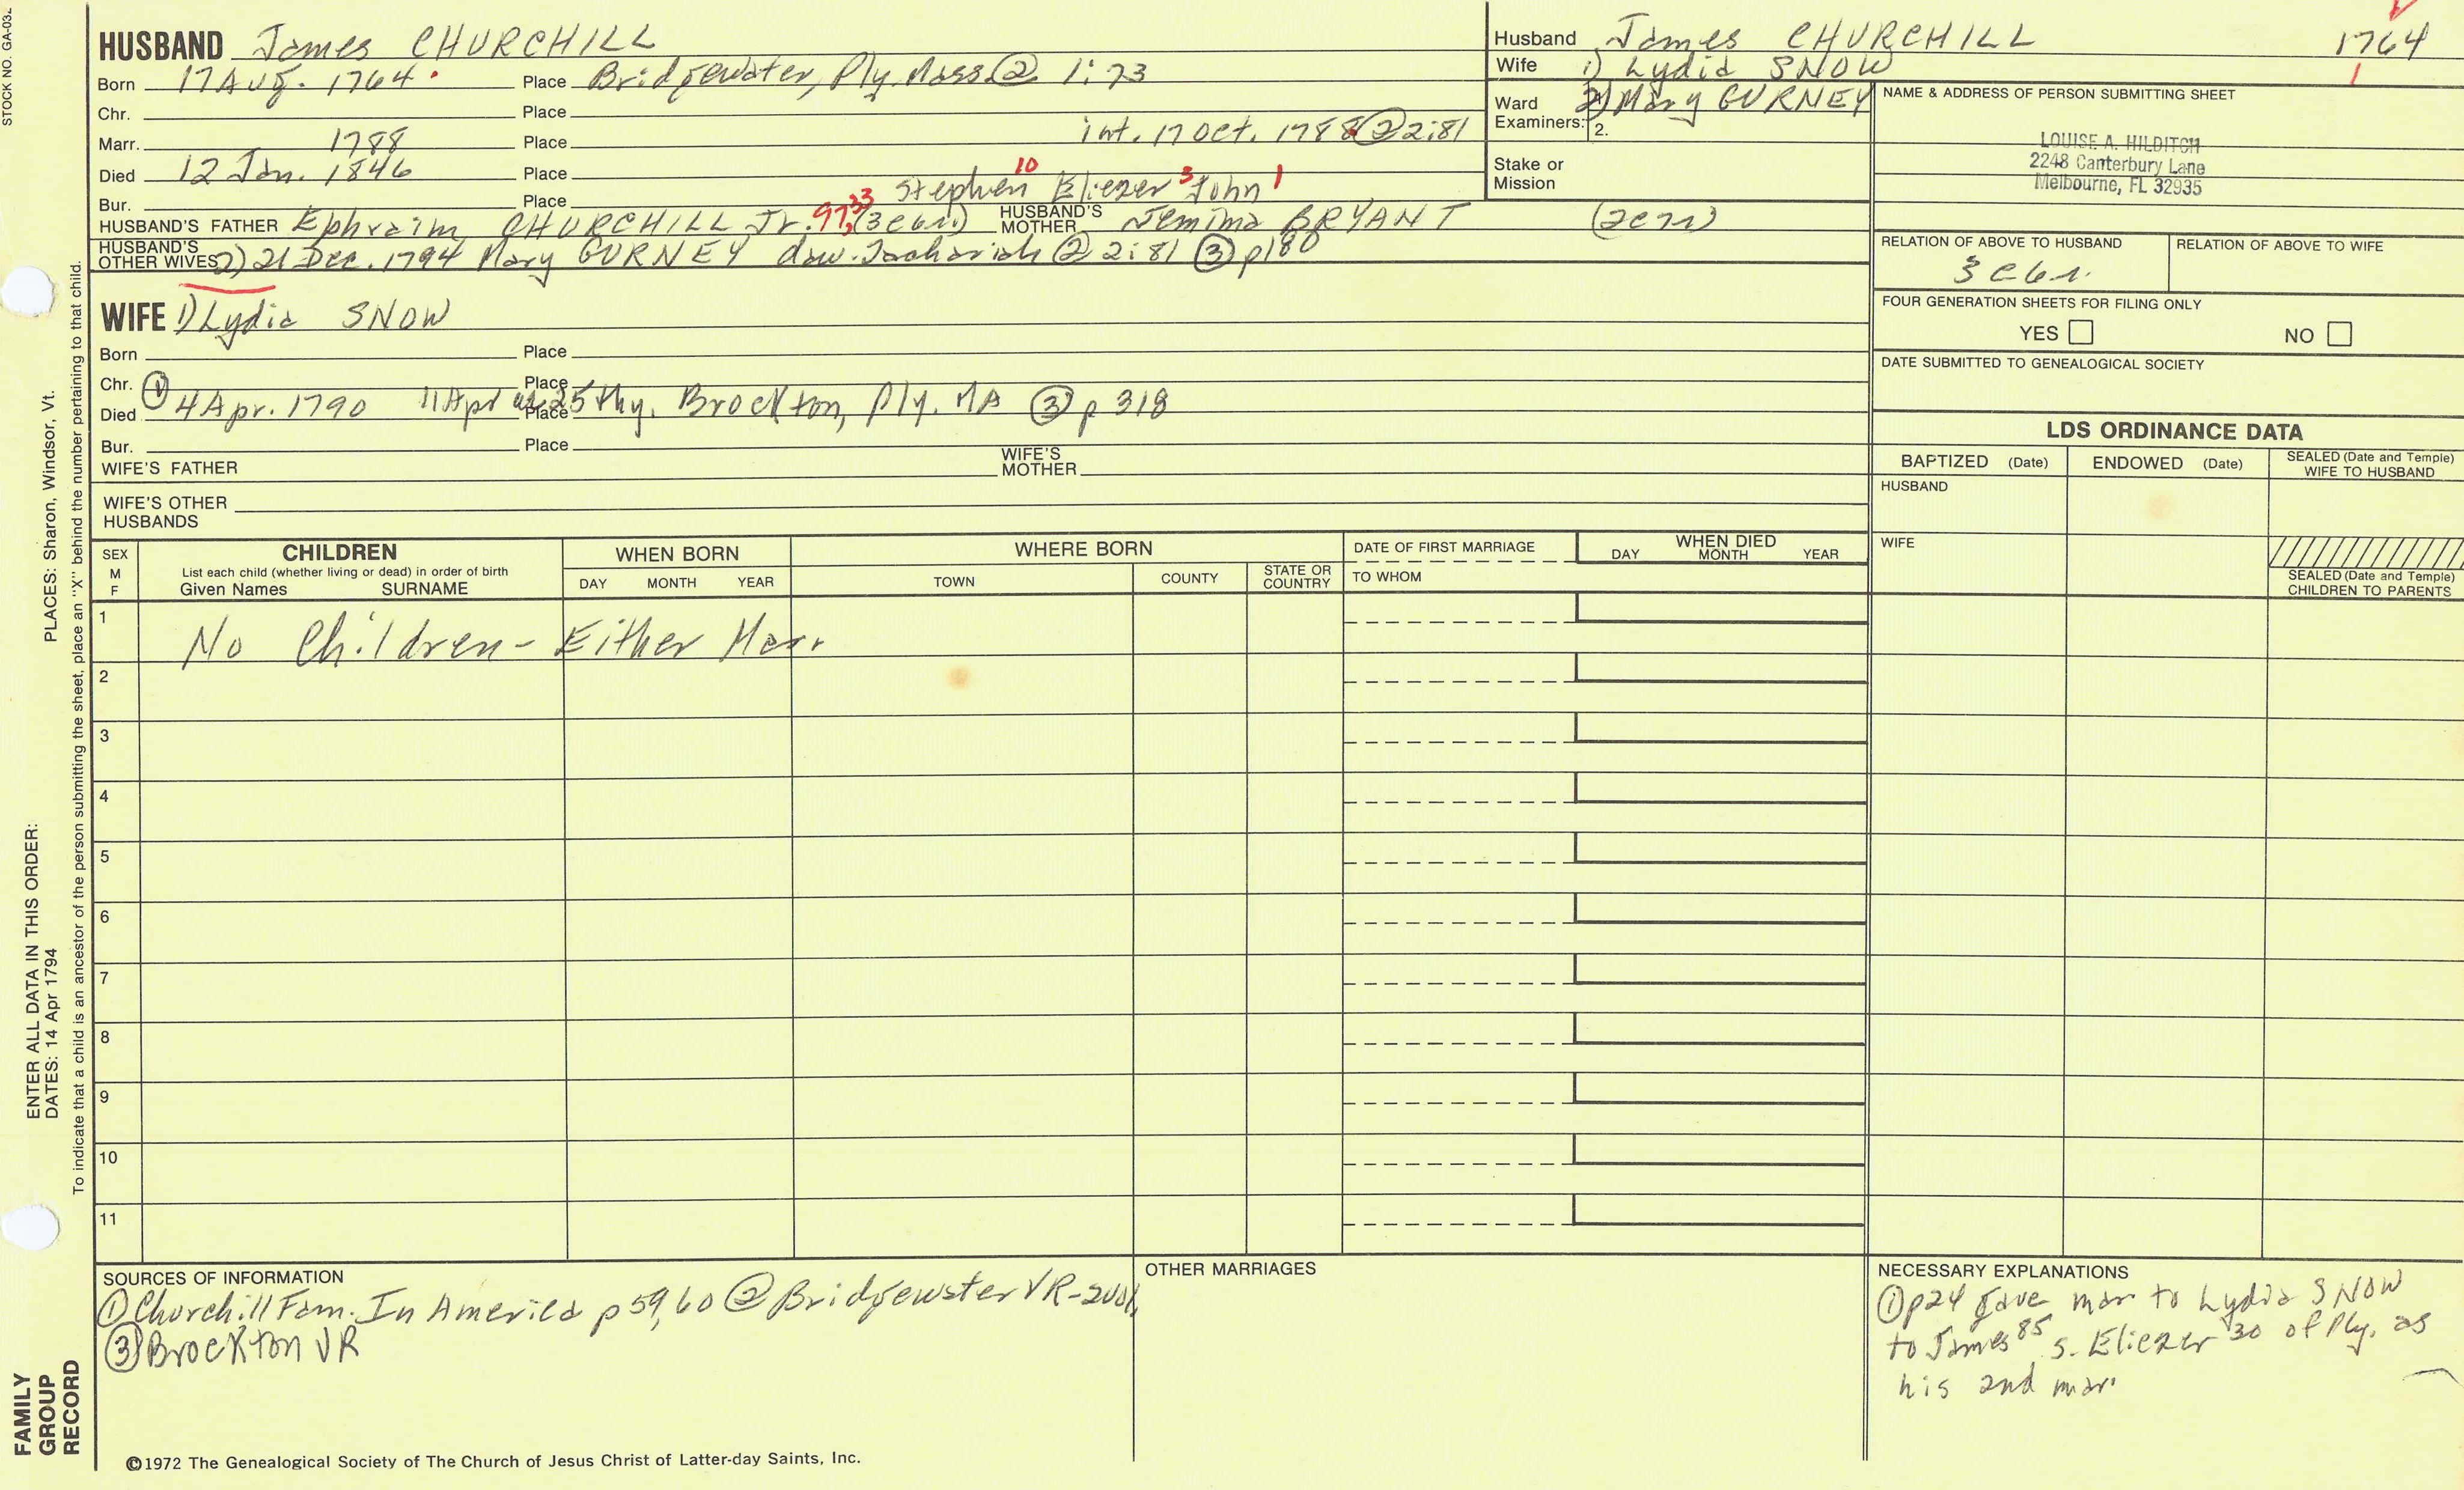 STOCK NO. GA-03
HUSBAND James CHURCHILL
Born 17 Aug. 1764. Place Bridgewater, Ply. Mass. ② 1:73
Chr. Place
Marr. 1788 Place int. 17 Oct. 1788 ② 2:81
Died 12 Jan. 1846 Place
Stephen 10 Eliezer 3 John 1
Bur. Place
HUSBAND'S FATHER Ephraim CHURCHILL Jr. 97, 33 (3C6R) HUSBAND'S MOTHER Jemima BRYANT (2C7R)
HUSBAND'S OTHER WIVES 2) 21 Dec. 1794 Mary GURNEY daw. Zachariah ② 2:81 ③ p180
WIFE 1) Lydia SNOW
Born Place
Chr. Place
Died ① 4 Apr. 1790 11 Apr ae 25 thy. Place Brockton, Ply. MA ③ p 318
Bur. Place
WIFE'S FATHER WIFE'S MOTHER
WIFE'S OTHER HUSBANDS
Husband James CHURCHILL 1764
Wife 1) Lydia SNOW
Ward Examiners: 2) Mary GURNEY
2.
Stake or Mission
NAME & ADDRESS OF PERSON SUBMITTING SHEET
LOUISE A. HILDITCH
2248 Canterbury Lane
Melbourne, FL 32935
RELATION OF ABOVE TO HUSBAND RELATION OF ABOVE TO WIFE
3C6r.
FOUR GENERATION SHEETS FOR FILING ONLY
YES NO
DATE SUBMITTED TO GENEALOGICAL SOCIETY
LDS ORDINANCE DATA
BAPTIZED (Date) ENDOWED (Date) SEALED (Date and Temple) WIFE TO HUSBAND
HUSBAND
WIFE
SEALED (Date and Temple) CHILDREN TO PARENTS
SEX M F
CHILDREN
List each child (whether living or dead) in order of birth
Given Names SURNAME
WHEN BORN
DAY MONTH YEAR
WHERE BORN
TOWN COUNTY STATE OR COUNTRY
DATE OF FIRST MARRIAGE
TO WHOM
WHEN DIED
DAY MONTH YEAR
1 No Children - Either Mar.
2
3
4
5
6
7
8
9
10
11
SOURCES OF INFORMATION
① Churchill Fam. In America p 59, 60 ② Bridgewater VR-2vol,
③ Brockton VR
OTHER MARRIAGES
NECESSARY EXPLANATIONS
① p24 gave mar to Lydia SNOW
to James 85 s. Eliezer 30 of Ply. as
his 2nd mar.
©1972 The Genealogical Society of The Church of Jesus Christ of Latter-day Saints, Inc.
PLACES: Sharon, Windsor, Vt.
To indicate that a child is an ancestor of the person submitting the sheet, place an "X" behind the number pertaining to that child.
ENTER ALL DATA IN THIS ORDER:
DATES: 14 Apr 1794
FAMILY
GROUP
RECORD